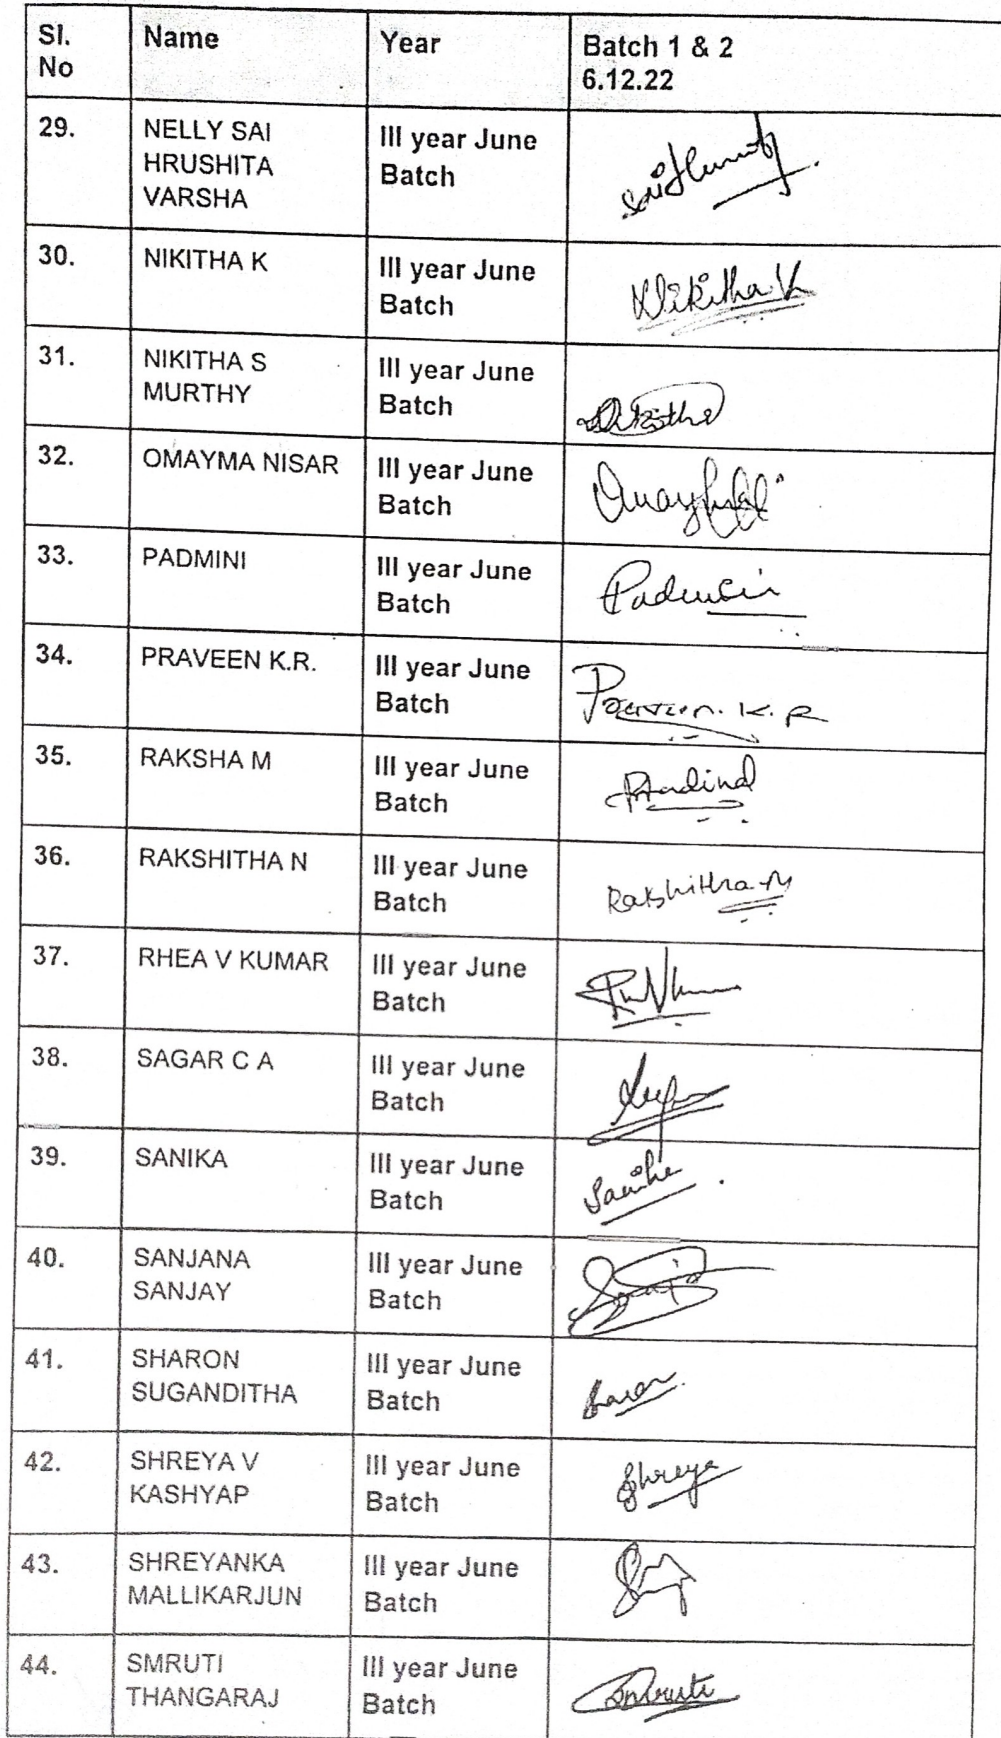 Sl. No	Name	Year	Batch 1 & 2
6.12.22
29.	NELLY SAI
HRUSHITA
VARSHA	III year June
Batch
30.	NIKITHA K	III year June
Batch	Nikitha K
31.	NIKITHA S
MURTHY	III year June
Batch	Nikitha
32.	OMAYMA NISAR	III year June
Batch
33.	PADMINI	III year June
Batch	Padmini
34.	PRAVEEN K.R.	III year June
Batch	Praveen. K. R
35.	RAKSHA M	III year June
Batch
36.	RAKSHITHA N	III year June
Batch	Rakshitha N
37.	RHEA V KUMAR	III year June
Batch
38.	SAGAR C A	III year June
Batch
39.	SANIKA	III year June
Batch	Sanika
40.	SANJANA
SANJAY	III year June
Batch
41.	SHARON
SUGANDITHA	III year June
Batch
42.	SHREYA V
KASHYAP	III year June
Batch	Shreya
43.	SHREYANKA
MALLIKARJUN	III year June
Batch
44.	SMRUTI
THANGARAJ	III year June
Batch	Smruti